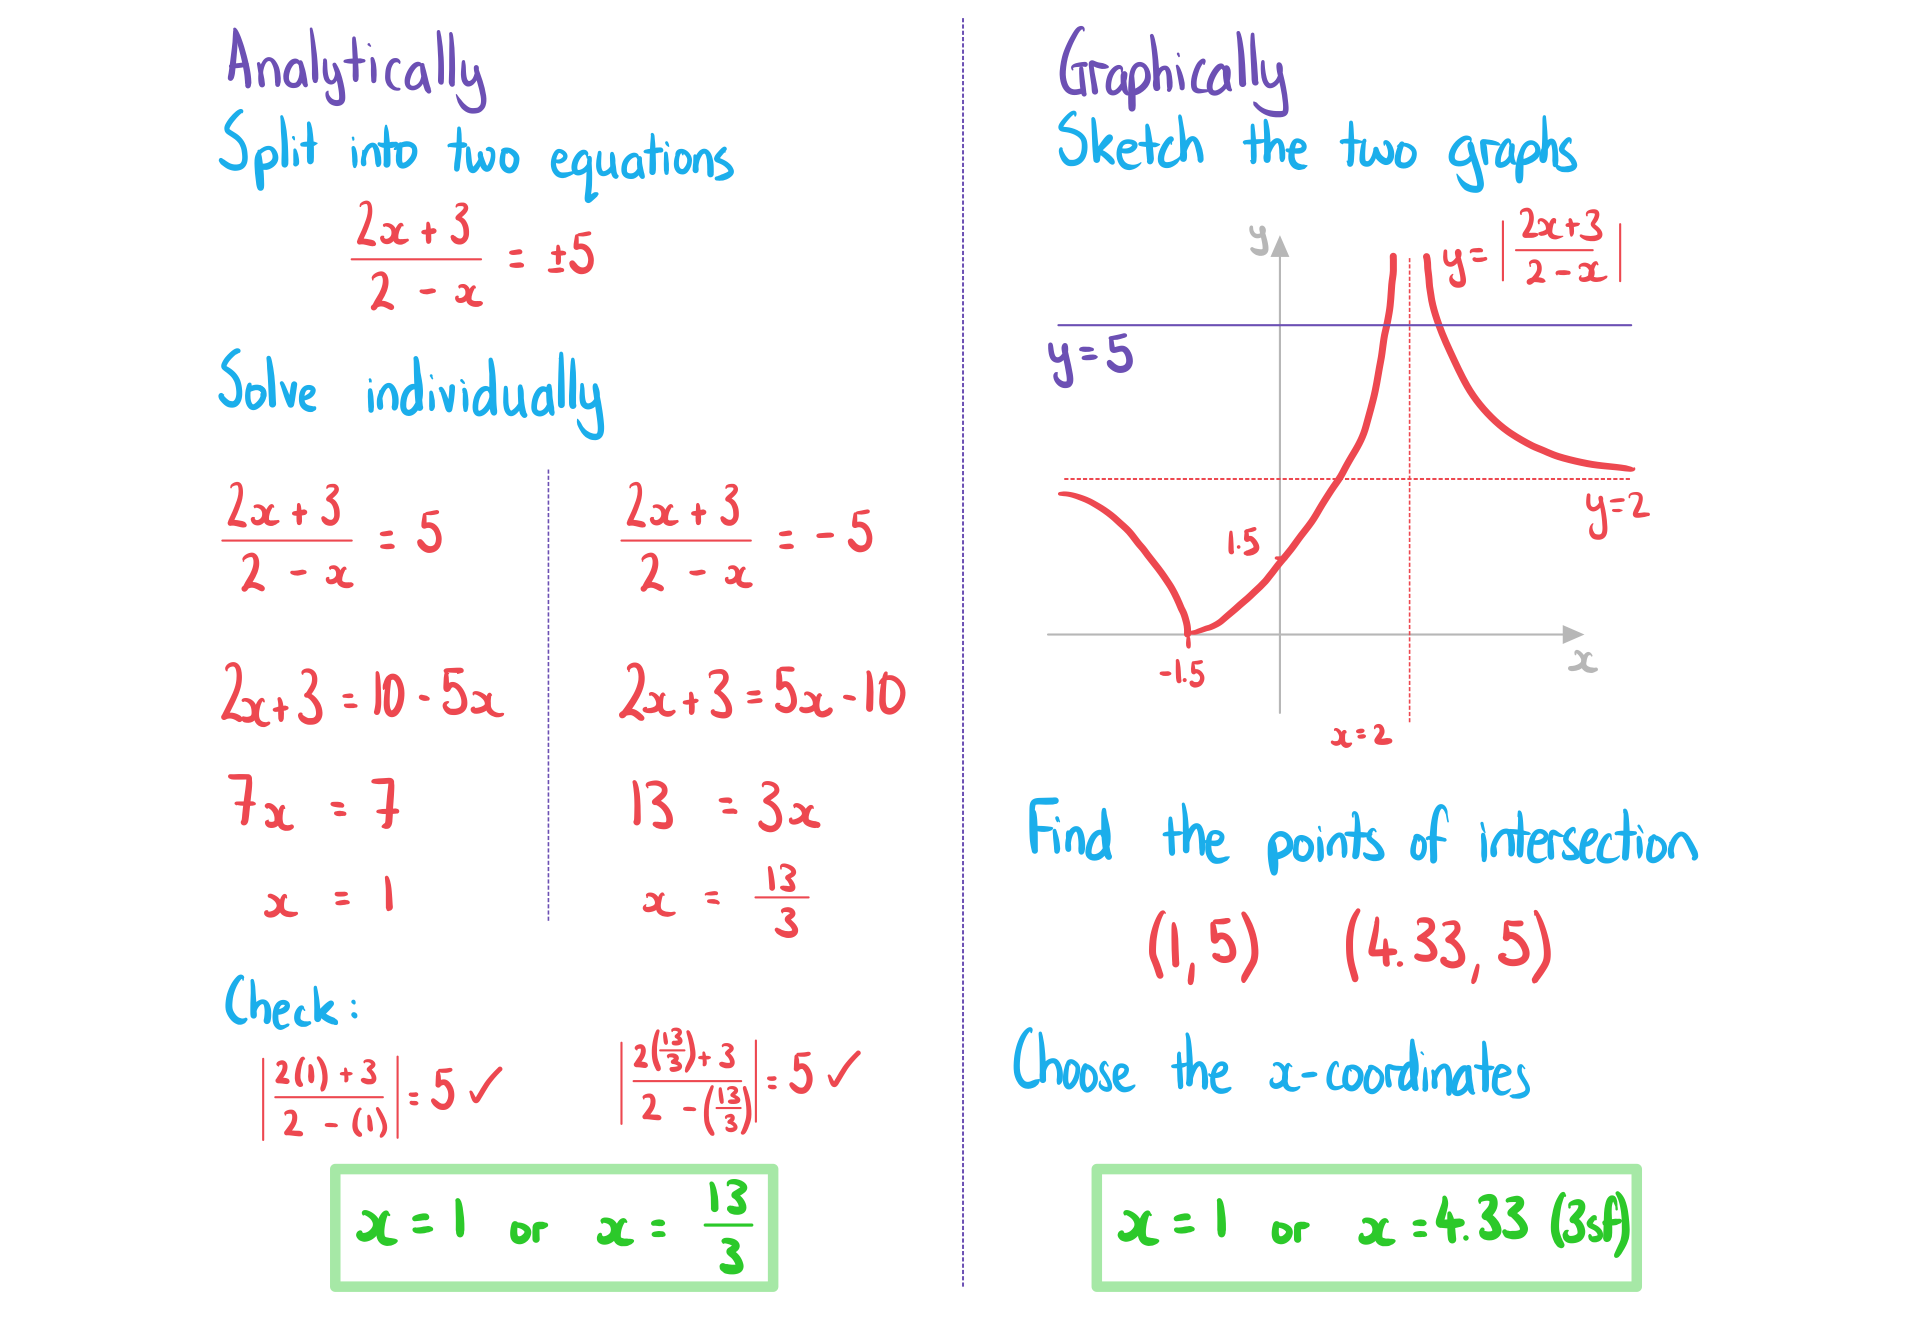 Analytically
Split into two equations
(2x + 3)/(2 - x) = ±5
Solve individually
(2x + 3)/(2 - x) = 5
2x + 3 = 10 - 5x
7x = 7
x = 1
(2x + 3)/(2 - x) = - 5
2x + 3 = 5x - 10
13 = 3x
x = 13/3
Check:
|(2(1) + 3)/(2 - (1))| = 5 ✓
|(2(13/3) + 3)/(2 - (13/3))| = 5 ✓
x = 1 or x = 13/3
Graphically
Sketch the two graphs
y
y = |(2x+3)/(2 - x)|
y = 5
y = 2
1.5
-1.5
x
x = 2
Find the points of intersection
(1, 5) (4.33, 5)
Choose the x-coordinates
x = 1 or x = 4.33 (3sf)